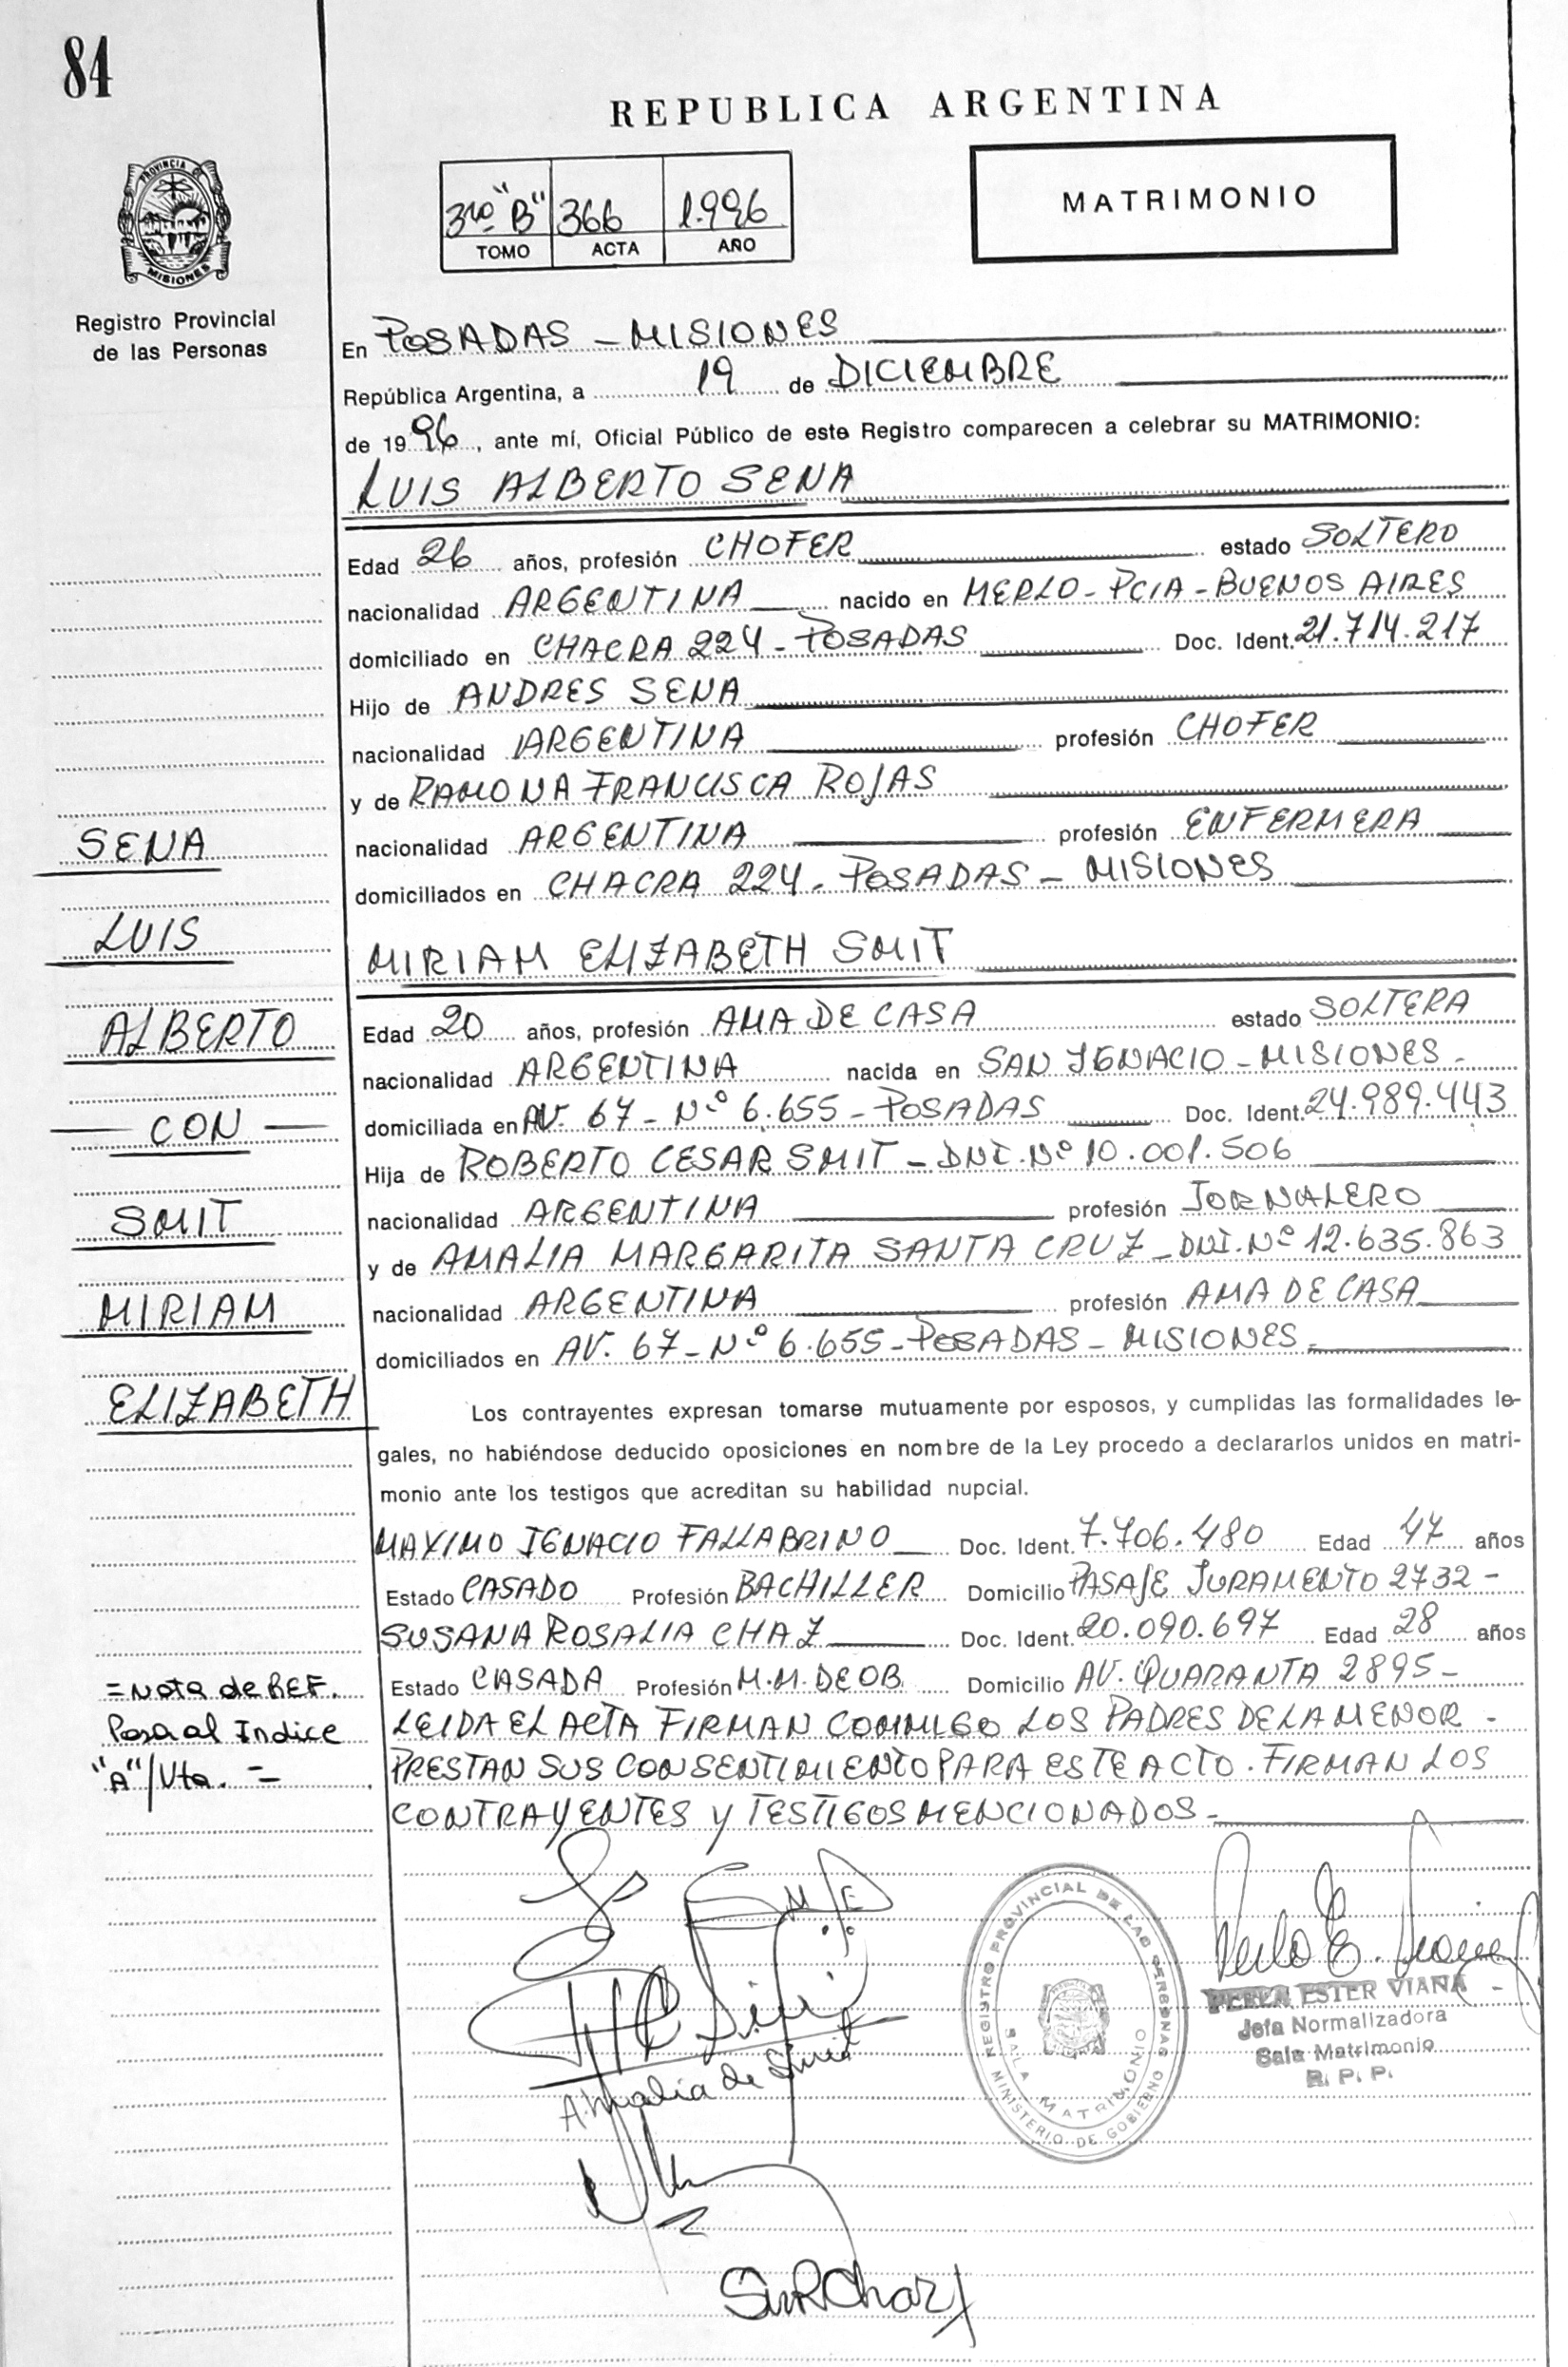 84
REPUBLICA ARGENTINA
3ro "B" 366 1.996
TOMO ACTA AÑO
MATRIMONIO
PROVINCIA DE MISIONES
Registro Provincial
de las Personas
En POSADAS - MISIONES
República Argentina, a 19 de DICIEMBRE
de 1996, ante mí, Oficial Público de este Registro comparecen a celebrar su MATRIMONIO:
LUIS ALBERTO SENA
Edad 26 años, profesión CHOFER estado SOLTERO
nacionalidad ARGENTINA nacido en MERLO - PCIA - BUENOS AIRES
domiciliado en CHACRA 224 - POSADAS Doc. Ident. 21.714.217
Hijo de ANDRES SENA
nacionalidad ARGENTINA profesión CHOFER
y de RAMONA FRANCISCA ROJAS
nacionalidad ARGENTINA profesión ENFERMERA
domiciliados en CHACRA 224 - POSADAS - MISIONES
MIRIAM ELIZABETH SMIT
Edad 20 años, profesión AMA DE CASA estado SOLTERA
nacionalidad ARGENTINA nacida en SAN IGNACIO - MISIONES -
domiciliada en AV. 67 - Nº 6.655 - POSADAS Doc. Ident. 24.989.443
Hija de ROBERTO CESAR SMIT - DNI. Nº 10.001.506
nacionalidad ARGENTINA profesión JORNALERO
y de AMALIA MARGARITA SANTA CRUZ - DNI. Nº 12.635.863
nacionalidad ARGENTINA profesión AMA DE CASA
domiciliados en AV. 67 - Nº 6.655 - POSADAS - MISIONES -
Los contrayentes expresan tomarse mutuamente por esposos, y cumplidas las formalidades le-
gales, no habiéndose deducido oposiciones en nombre de la Ley procedo a declararlos unidos en matri-
monio ante los testigos que acreditan su habilidad nupcial.
MAXIMO IGNACIO FALLABRINO Doc. Ident. 7.706.480 Edad 47 años
Estado CASADO Profesión BACHILLER Domicilio PASAJE JURAMENTO 2732 -
SUSANA ROSALIA CHAZ Doc. Ident. 20.090.697 Edad 28 años
Estado CASADA Profesión M.M. DE OB. Domicilio AV. QUARANTA 2895 -
LEIDA EL ACTA FIRMAN CONMIGO LOS PADRES DE LA MENOR -
PRESTAN SUS CONSENTIMIENTO PARA ESTE ACTO. FIRMAN LOS
CONTRAYENTES Y TESTIGOS MENCIONADOS -
SENA
LUIS
ALBERTO
CON
SMIT
MIRIAM
ELIZABETH
= Nota de REF.
Pasa al Indice
"A" / Vta. =
Amalia de Smit
REGISTRO PROVINCIAL DE LAS PERSONAS
SALA MATRIMONIO
MINISTERIO DE GOBIERNO
PERLA ESTER VIANA
Jefa Normalizadora
Sala Matrimonio
R. P. P.